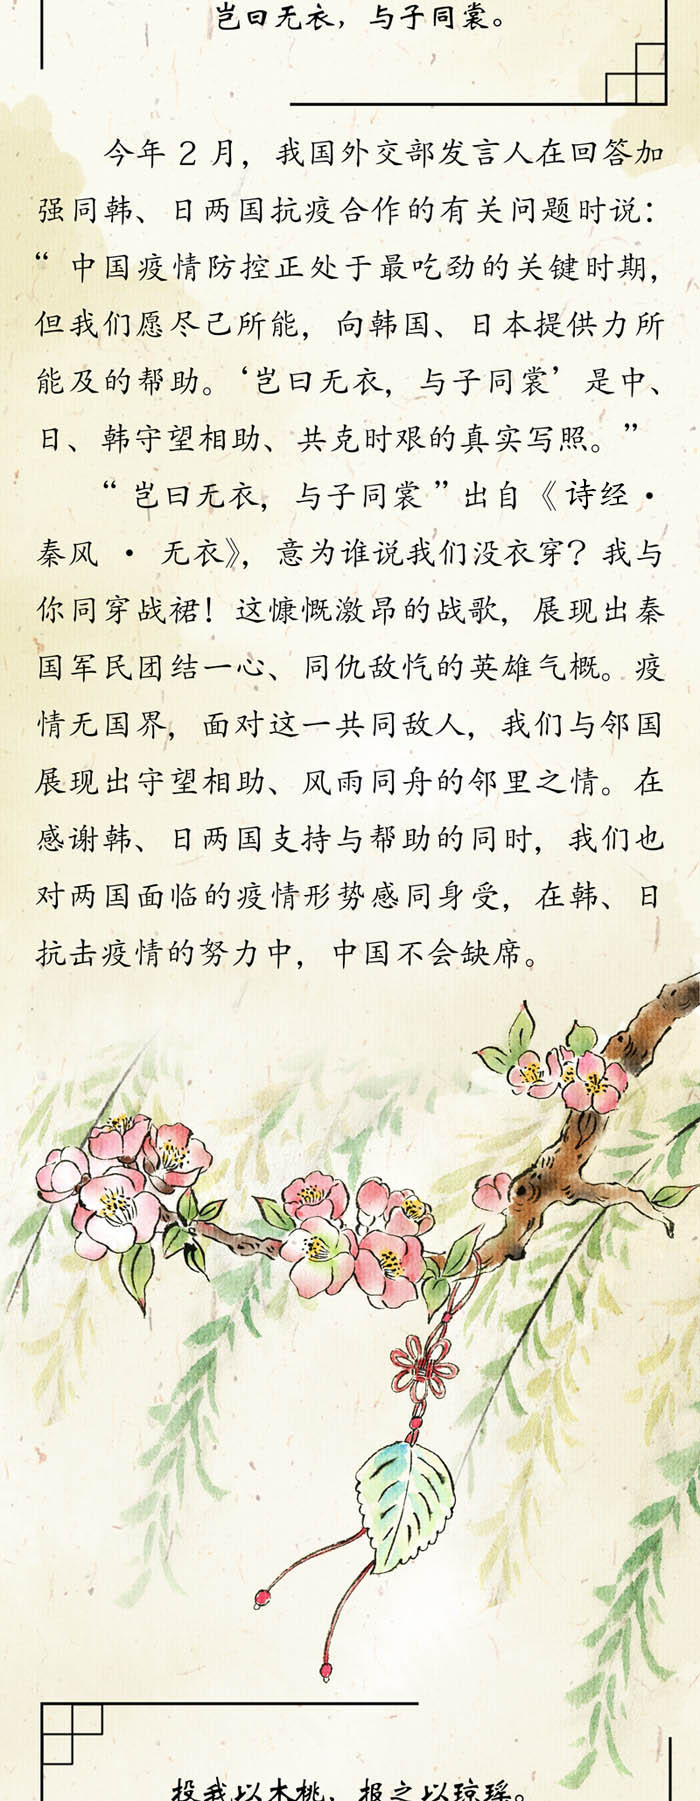 岂曰无衣，与子同裳。
今年 2 月，我国外交部发言人在回答加
强同韩、日两国抗疫合作的有关问题时说：
“ 中国疫情防控正处于最吃劲的关键时期，
但我们愿尽己所能，向韩国、日本提供力所
能及的帮助。‘岂曰无衣，与子同裳’是中、
日、韩守望相助、共克时艰的真实写照。”
“ 岂曰无衣，与子同裳 ” 出自《诗经·
秦风 · 无衣》，意为谁说我们没衣穿？我与
你同穿战裙！这慷慨激昂的战歌，展现出秦
国军民团结一心、同仇敌忾的英雄气概。疫
情无国界，面对这一共同敌人，我们与邻国
展现出守望相助、风雨同舟的邻里之情。在
感谢韩、日两国支持与帮助的同时，我们也
对两国面临的疫情形势感同身受，在韩、日
抗击疫情的努力中，中国不会缺席。
投我以木桃，报之以琼瑶。